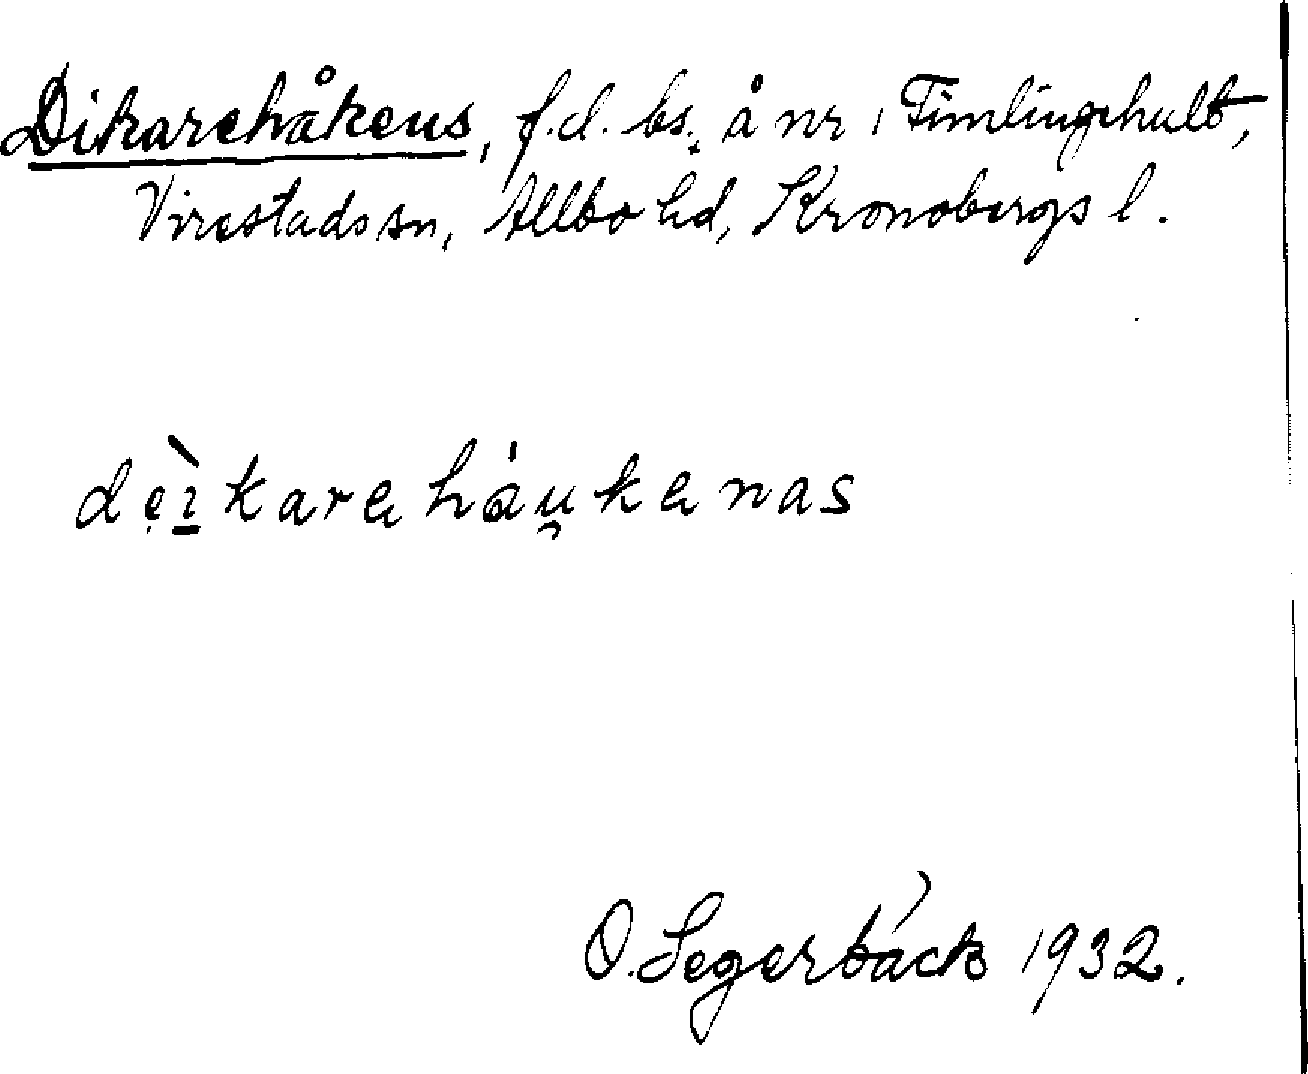 Dikarehåkens, f.d. bs. å nr 1 Timlingehult,
Virestads sn, Allbo hd, Kronobergs l.
dẹ̀ı̱karehåu̯kenas
O. Segerbäck 1932.